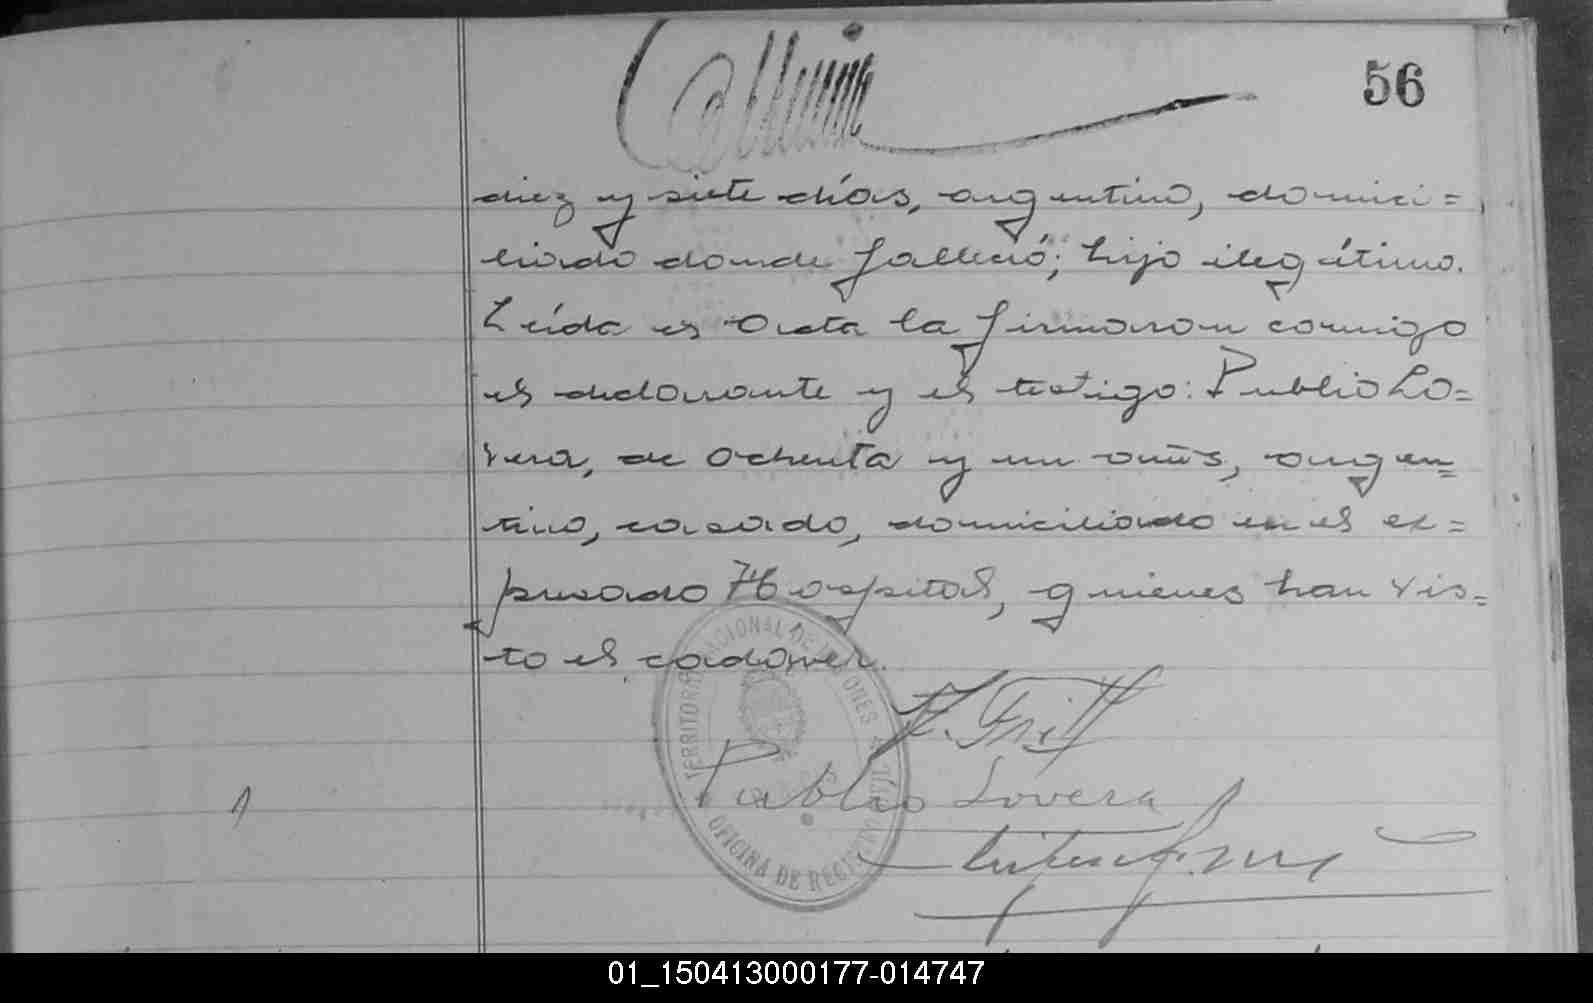 56
diez y siete días, argentino, domici=
liado donde falleció; hijo ilegítimo.
Leída el Acta la firmaron conmigo
el declarante y el testigo: Publio Lo=
vera, de ochenta y un años, argen=
tino, casado, domiciliado en el ex=
presado Hospital, quienes han vis=
to el cadáver.
TERRITORIO NACIONAL DE MISIONES
OFICINA DE REGISTRO
Publio Lovera
01_150413000177-014747